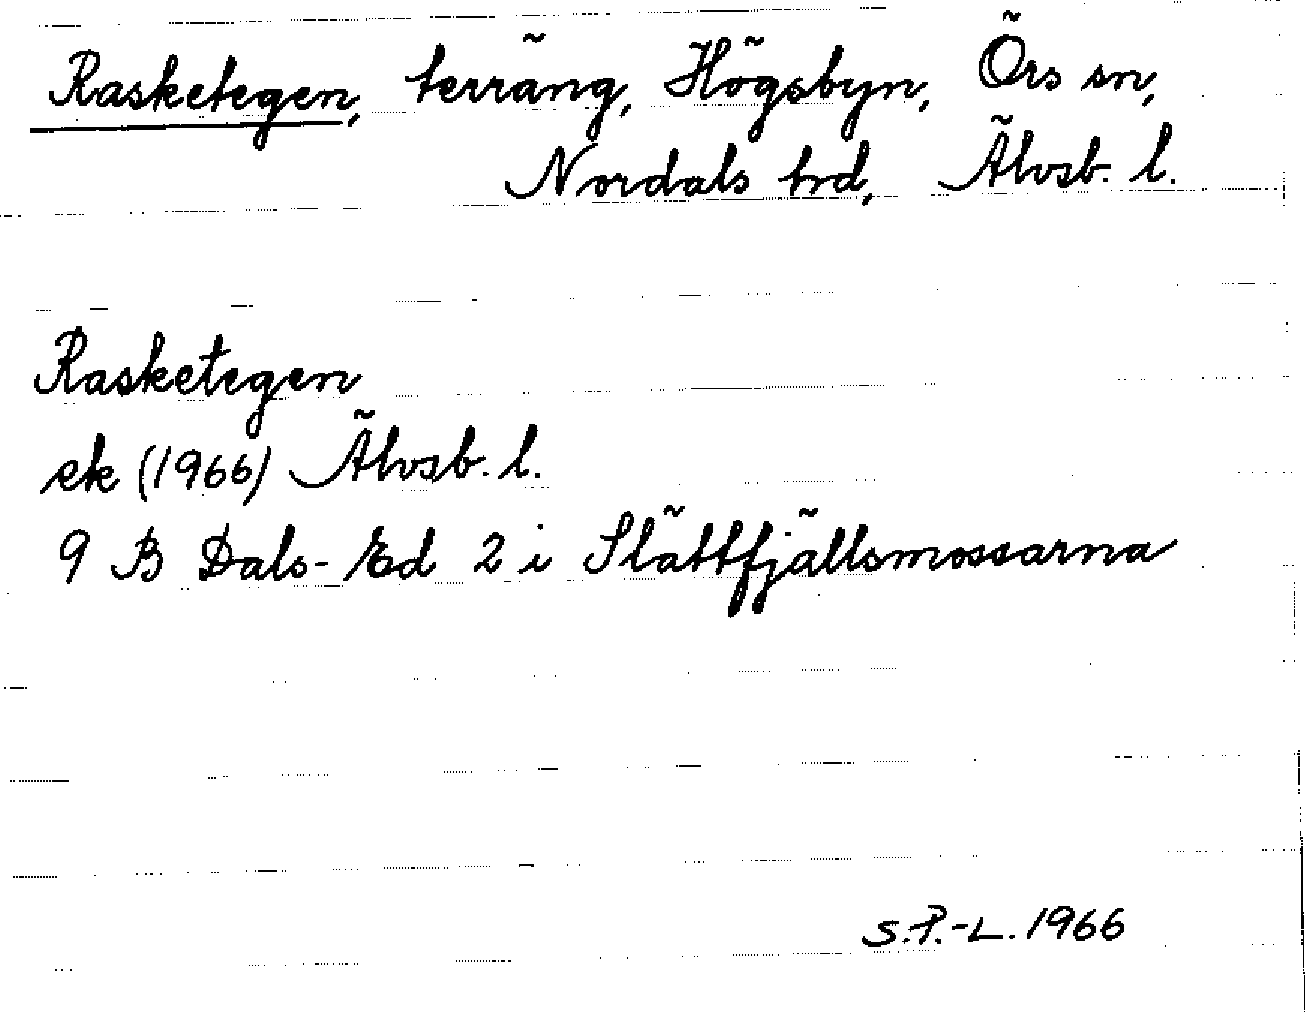 Rasketegen, terräng, Högsbyn, Örs sn,
Nordals hd, Älvsb. l.
Rasketegen
ek (1966) Älvsb. l.
9 B Dals-Ed 2 i Slättfjällsmossarna
S.P.-L. 1966